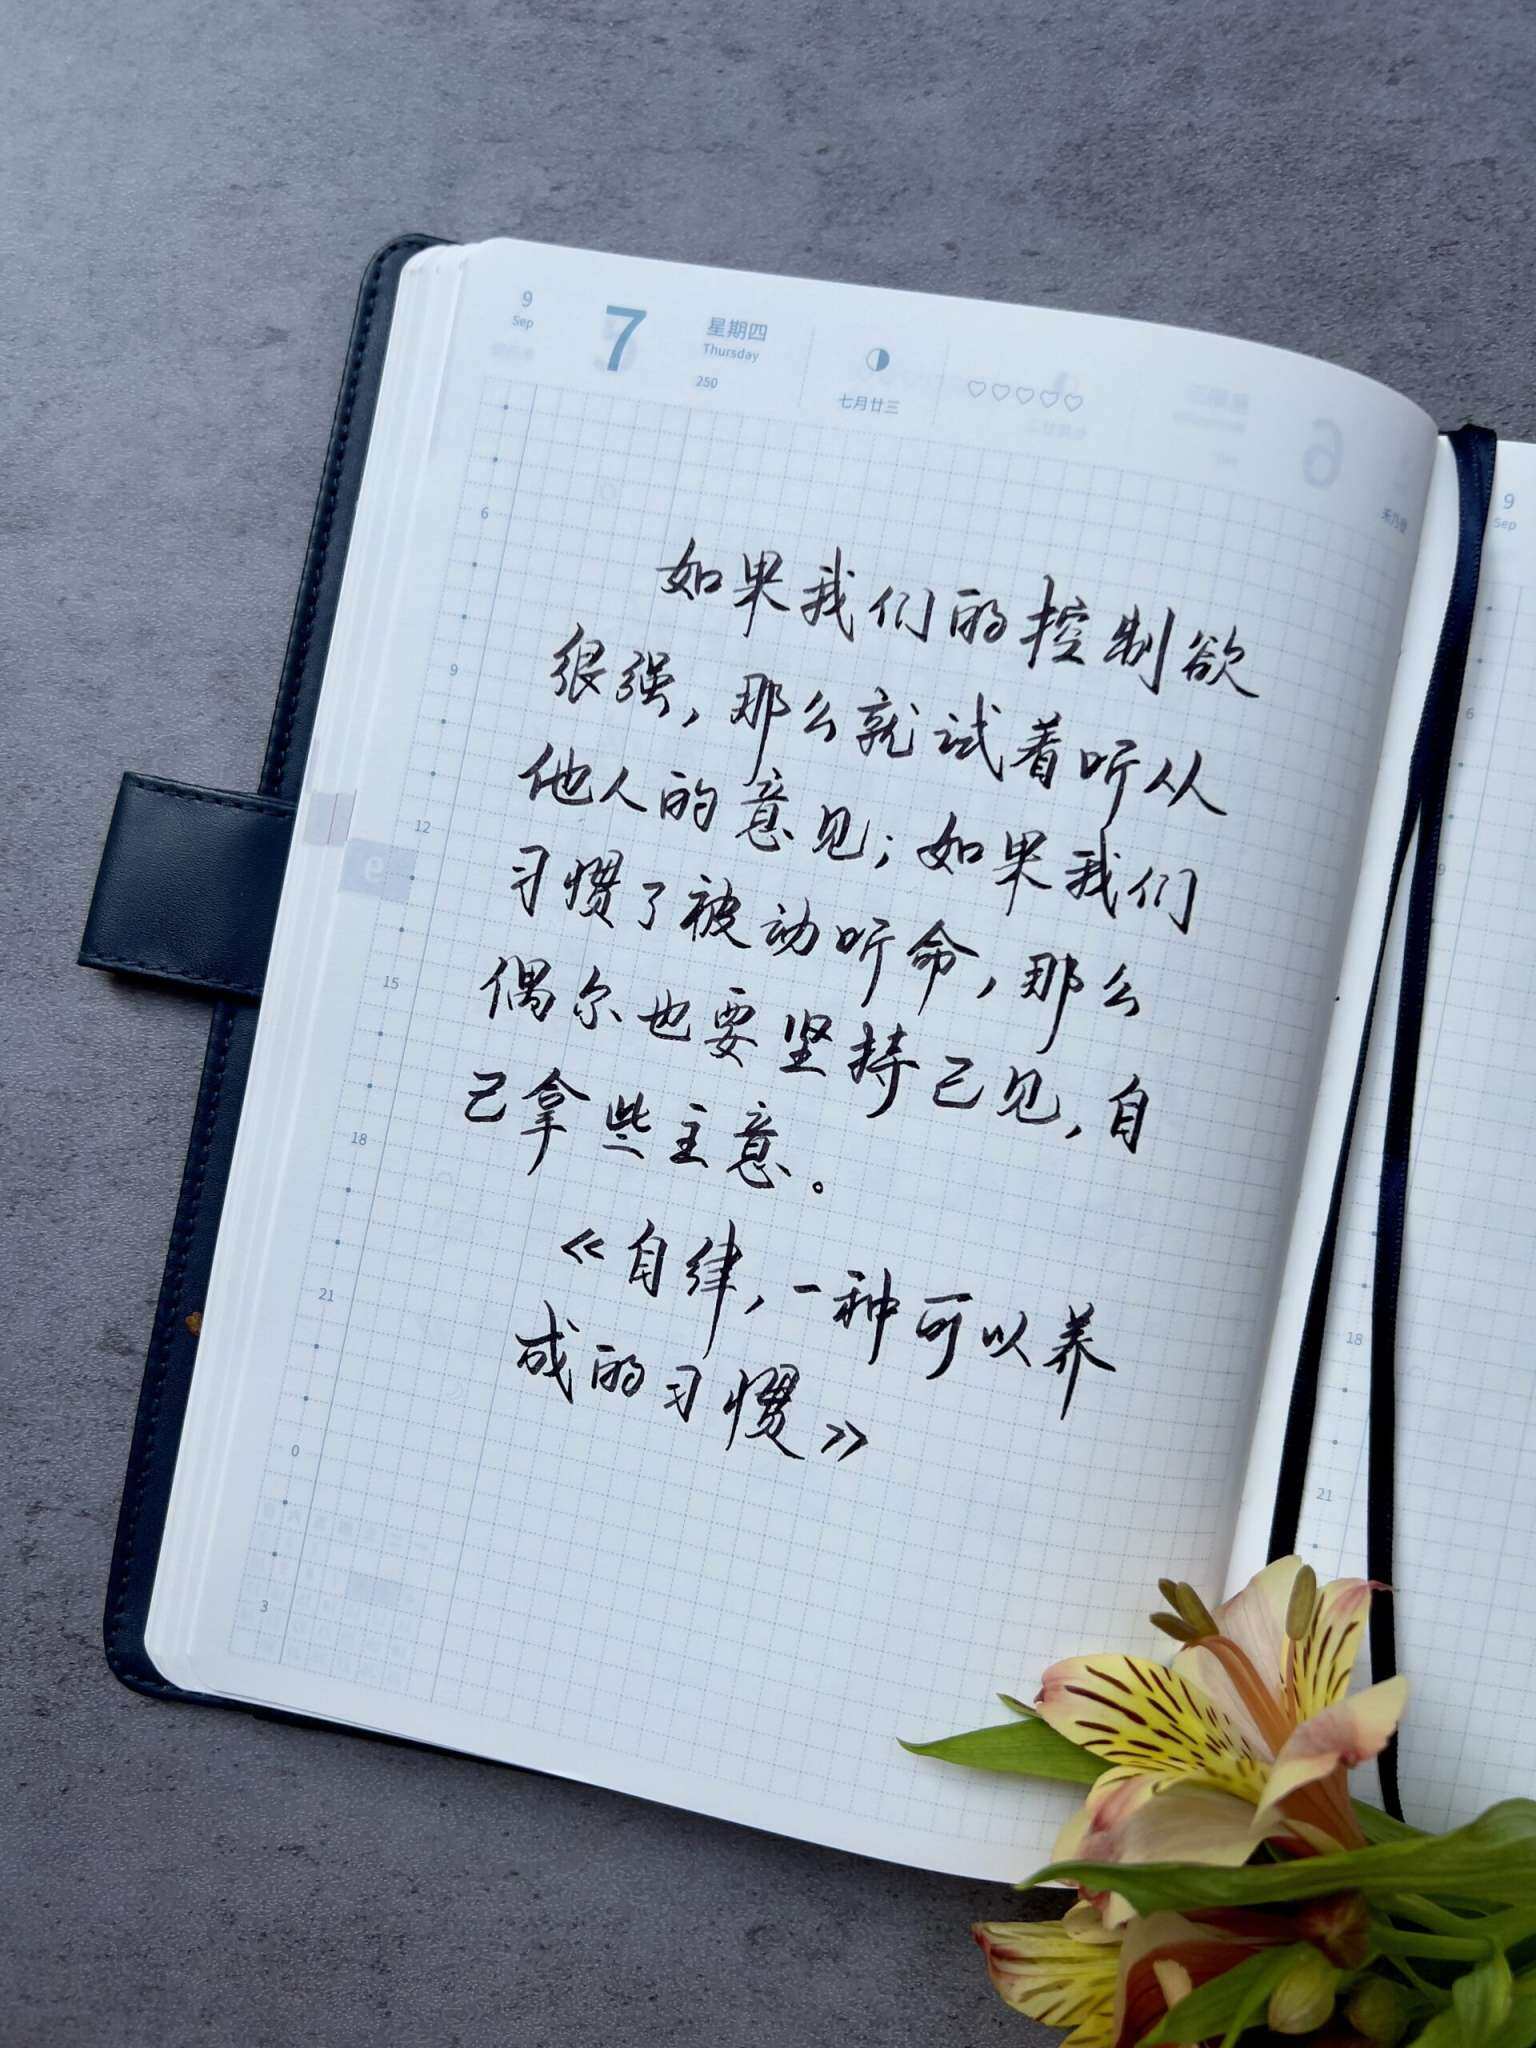 9
Sep
7
星期四
Thursday
250
七月廿三
6
9
12
15
18
21
0
3
9
如果我们的控制欲
很强，那么就试着听从
他人的意见；如果我们
习惯了被动听命，那么
偶尔也要坚持己见，自
己拿些主意。
《自律，一种可以养
成的习惯》
9
Sep
6
9
18
21